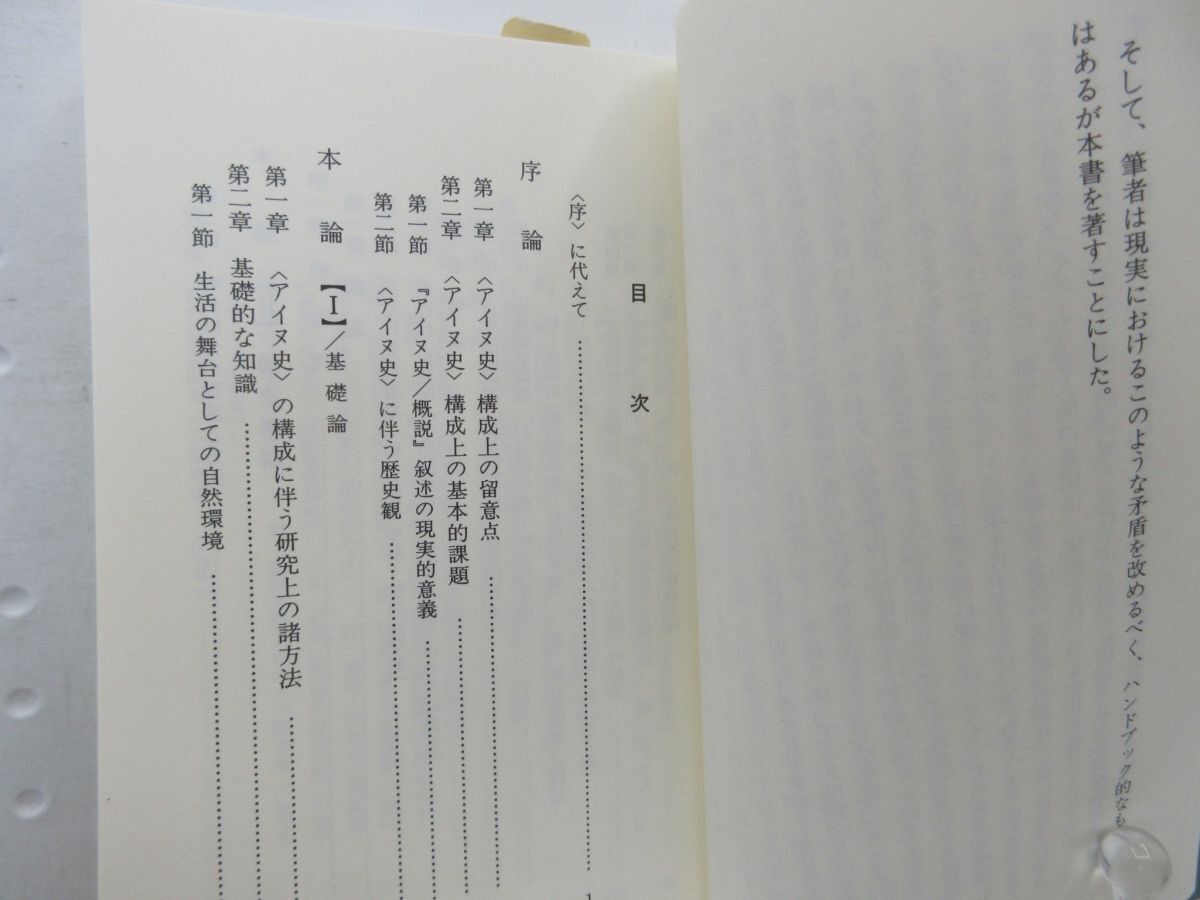 そして、筆者は現実におけるこのような矛盾を改めるべく、ハンドブック的なも
はあるが本書を著すことにした。
目次
〈序〉に代えて……………………1
序論
第一章 〈アイヌ史〉構成上の留意点……………………
第二章 〈アイヌ史〉構成上の基本的課題……………………
第一節 『アイヌ史/概説』叙述の現実的意義……………………
第二節 〈アイヌ史〉に伴う歴史観……………………
本論【Ⅰ】/基礎論
第一章 〈アイヌ史〉の構成に伴う研究上の諸方法……………………
第二章 基礎的な知識……………………
第一節 生活の舞台としての自然環境……………………